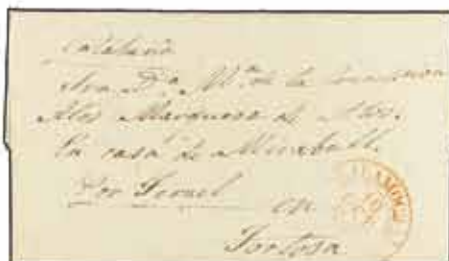 Cataluña
Sra. D.ª M.ª de la
Marquesa de
En casa de Mirabell
Por Teruel
en
Tortosa